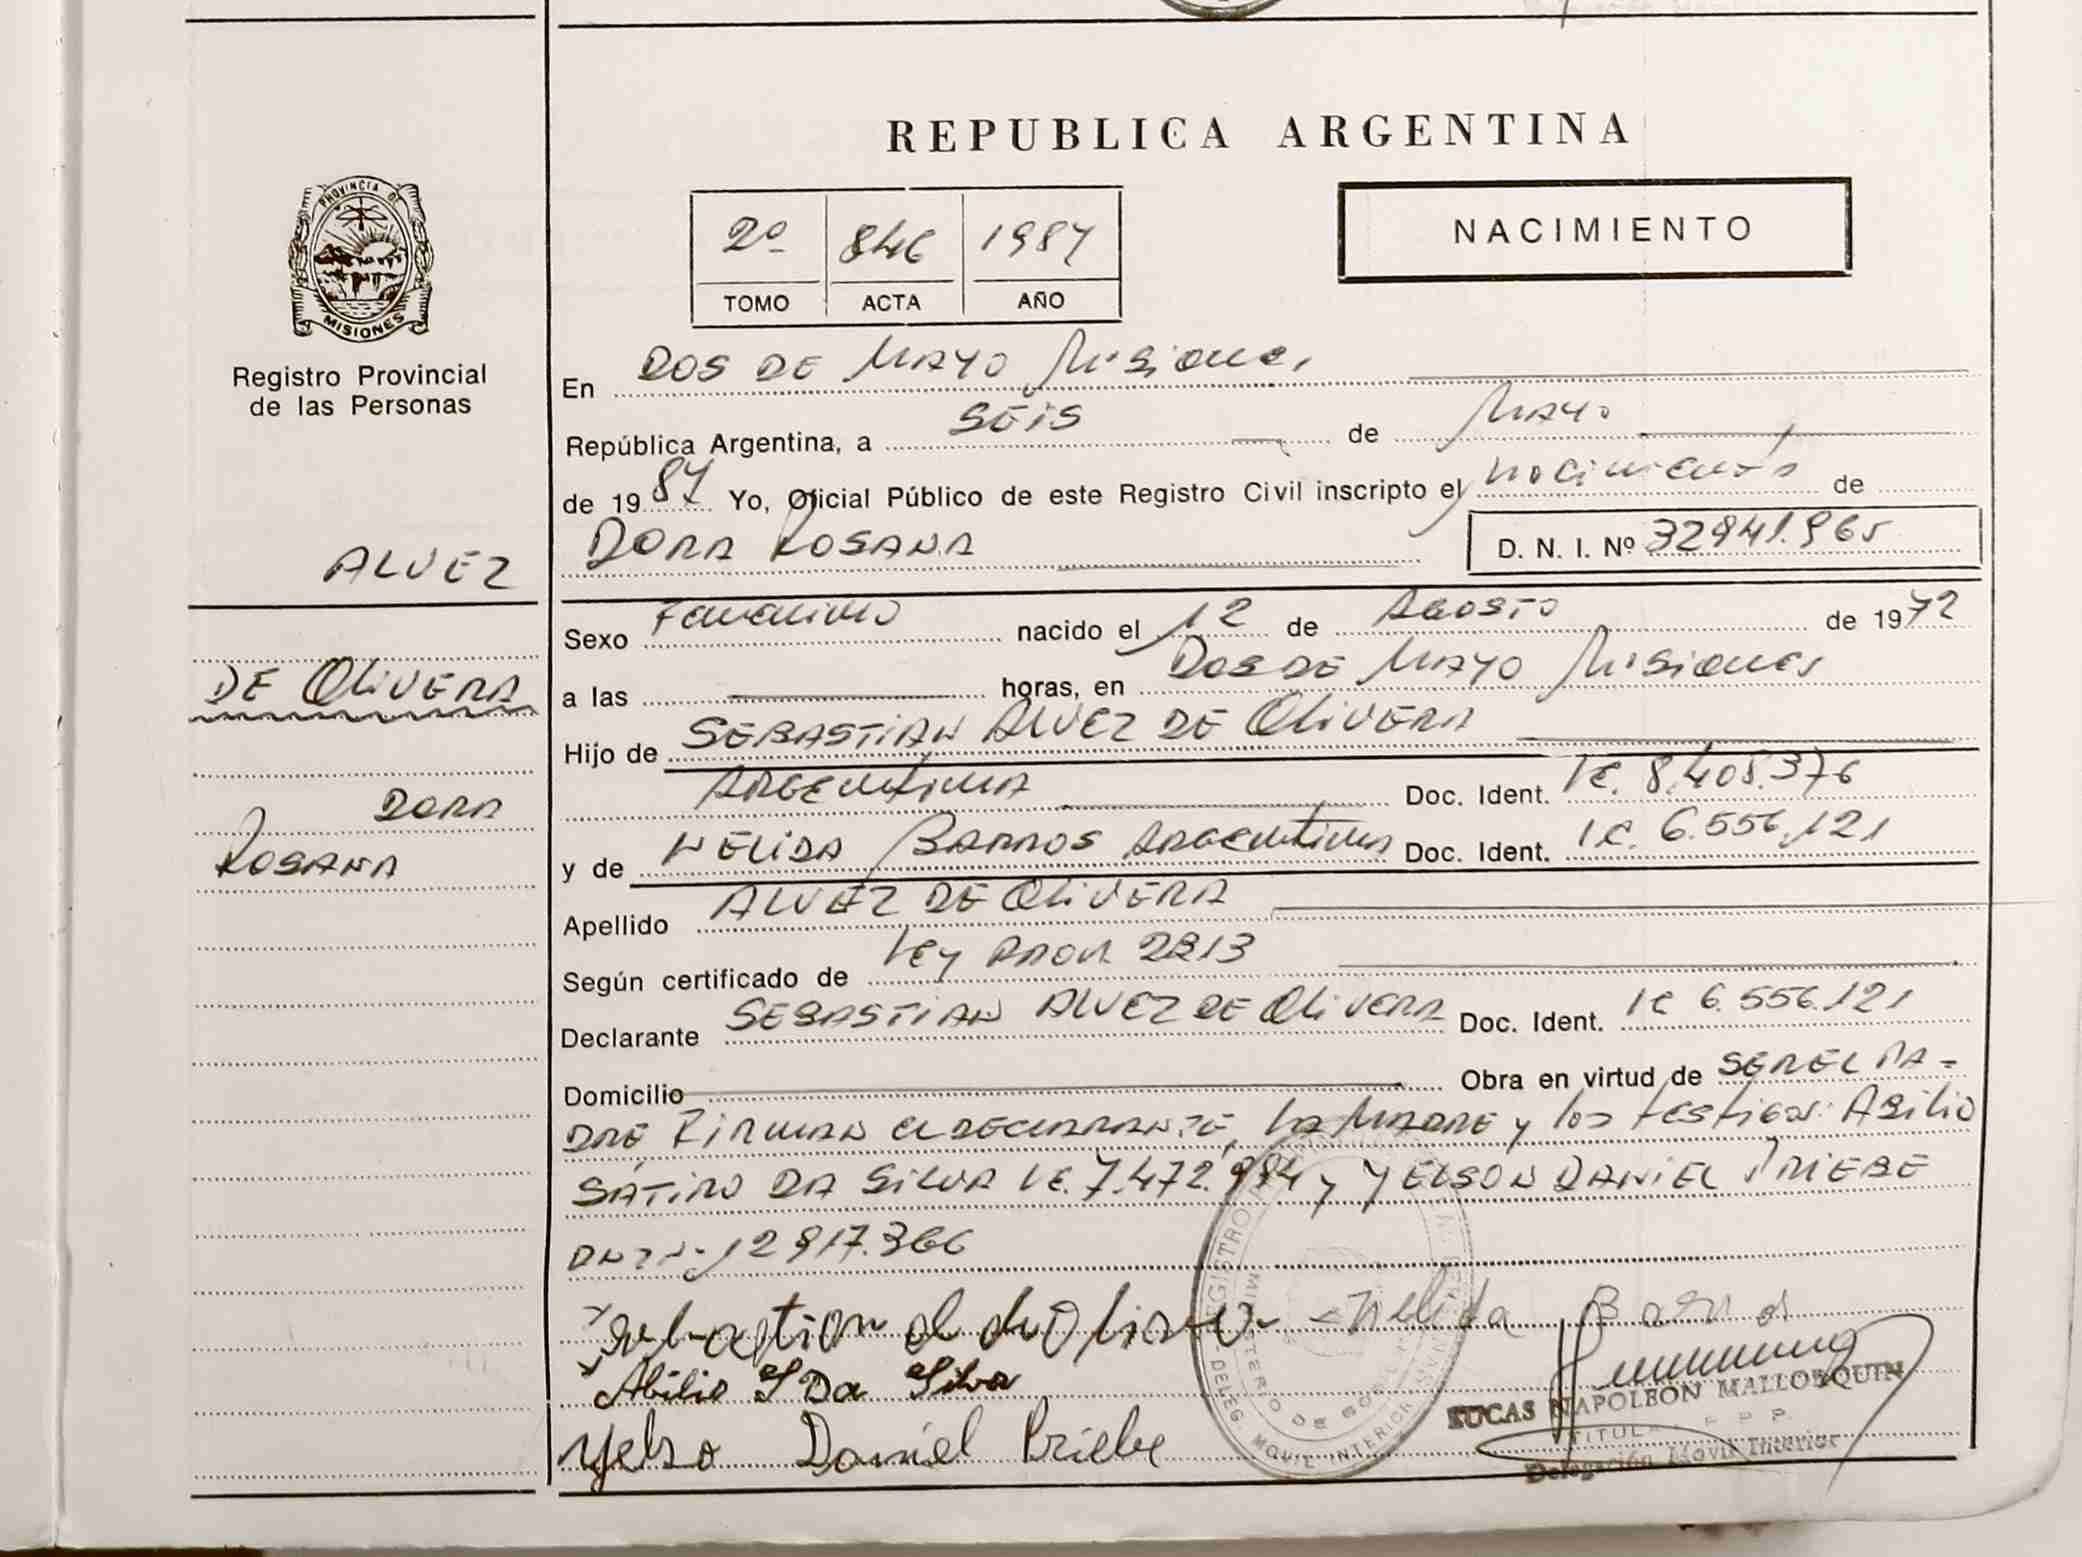 REPUBLICA ARGENTINA
NACIMIENTO
2º 846 1987
TOMO ACTA AÑO
PROVINCIA DE
MISIONES
Registro Provincial
de las Personas
ALVEZ
DE OLIVERA
DORA
ROSANA
En DOS DE MAYO Misiones
República Argentina, a SEIS de MAYO
de 1987 Yo, Oficial Público de este Registro Civil inscripto el nacimiento de
DORA ROSANA D. N. I. Nº 32941.965
Sexo Femenino nacido el 12 de AGOSTO de 1972
a las horas, en DOS DE MAYO Misiones
Hijo de SEBASTIAN ALVEZ DE OLIVERA
ARGENtina Doc. Ident. LE. 8.408.376
y de NELIDA BARROS ARGENtina Doc. Ident. LC. 6.556.121
Apellido ALVEZ DE OLIVERA
Según certificado de Ley 2213
Declarante SEBASTIAN ALVEZ DE OLIVERA Doc. Ident. LC 6.556.121
Domicilio Obra en virtud de SER EL PA-
DRE, FIRMAN el DECLARANTE, LA MADRE y los testigos: ABILIO
SATIRO DA SILVA LE. 7.472.984 y YELSON DANIEL PRIEBE
DNI Nº 12917.366
Nelida Barros
Abilio S Da Silva
Yelso Daniel Priebe
LUCAS NAPOLEON MALLORQUIN
TITULAR R P P
Delegación Movil Interior
REGISTRO
MINISTERIO DE GOB.
DELEG. MOVIL INTERIOR